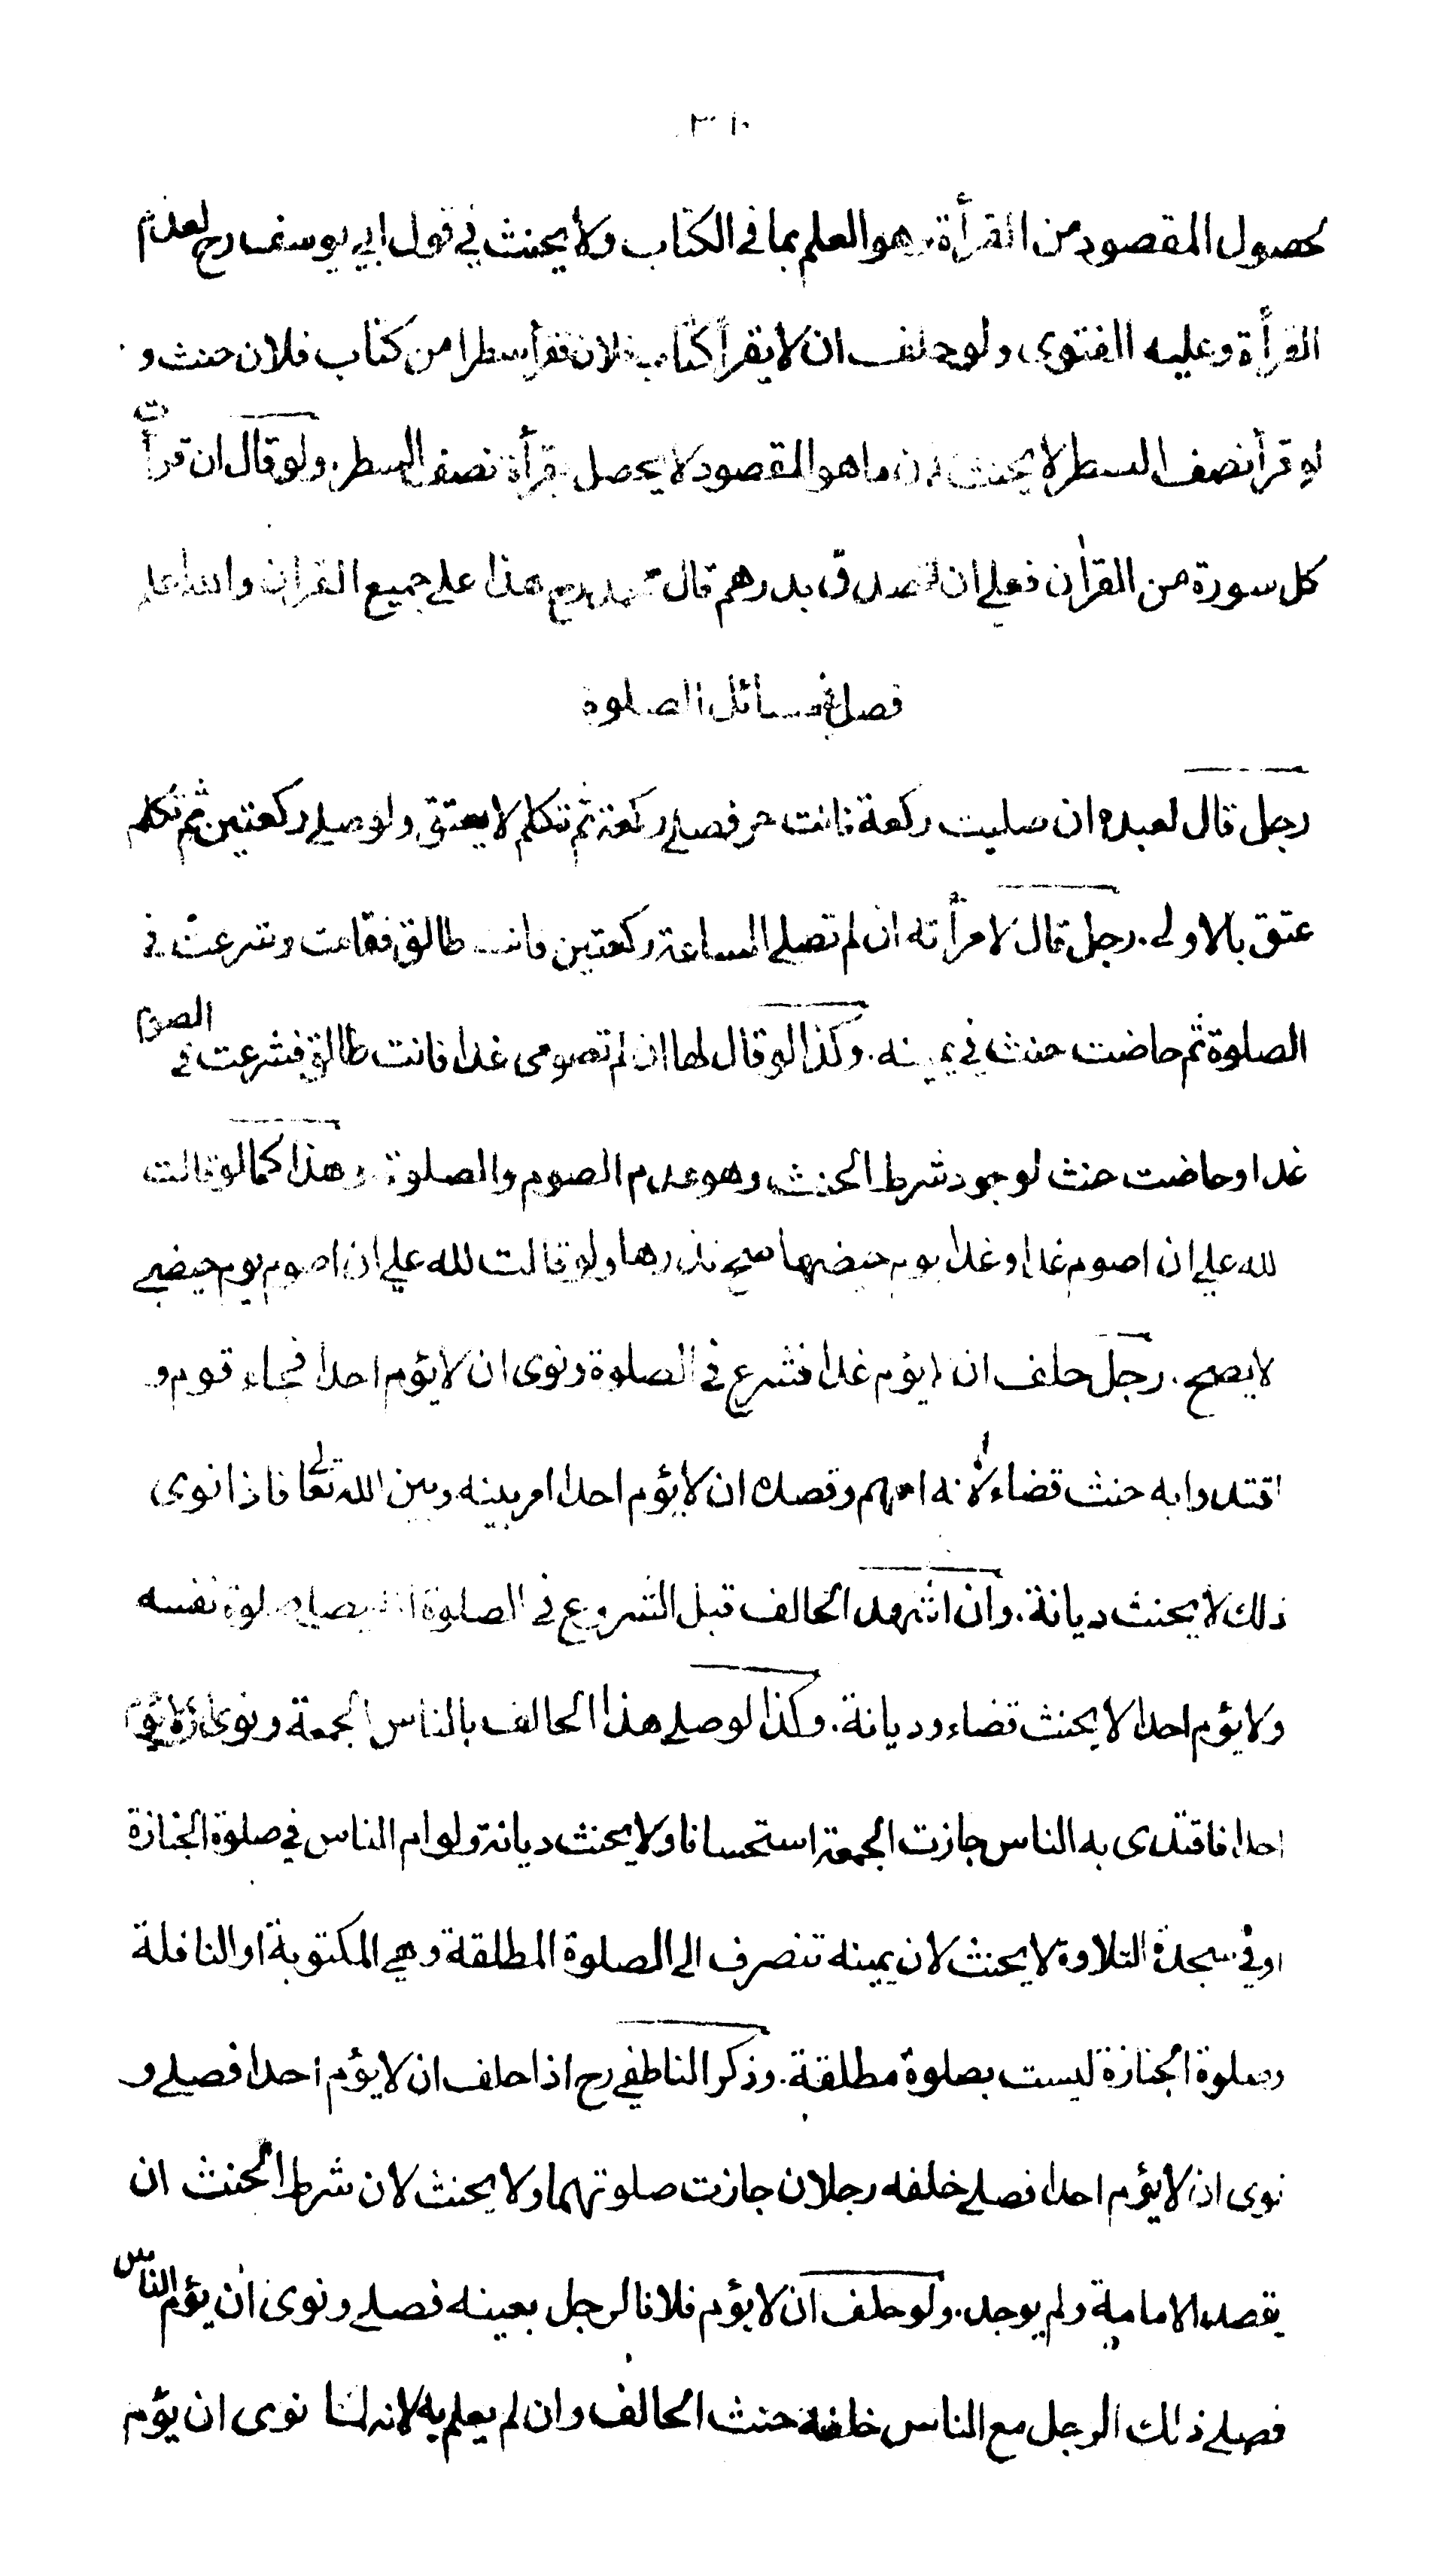 لحصول المقصود من القرأة وهو العلم بما فى الكتاب ولا يحنث في قول ابي يوسف رح لعدم
القرأة وعليه الفتوى ولو حلف ان لا يقرأ كتاب فلان فقرأ سطرا من كتاب فلان حنث و
لو قرأ نصف السطر لا يحنث لان ما هو المقصود لا يحصل بقرأة نصف السطر. ولو قال ان قرأت
كل سورة من القرأن فعلي ان اتصدق بدرهم قال محمد رح هذا على جميع القران والله اعلم
فصل في مسائل الصلوة
رجل قال لعبده ان صليت ركعة فانت حر فصلى ركعة ثم تكلم لا يعتق ولو صلى ركعتين ثم تكلم
عتق بالاولى. رجل قال لامرأته ان لم تصلي الساعة ركعتين فانت طالق فقامت وشرعت في
الصلوة ثم حاضت حنث في يمينه. وكذا لو قال لها ان لم تصومى غدا فانت طالق فشرعت في الصوم
غدا وحاضت حنث لوجود شرط الحنث وهو عدم الصوم والصلوة وهذا كما لو قالت
لله علي ان اصوم غدا وغدا يوم حيضها صح نذرها ولو قالت لله علي ان اصوم يوم حيضي
لا يصح. رجل حلف ان لا يؤم غدا فشرع في الصلوة ونوى ان لا يؤم احدا فجاء قوم و
اقتدوا به حنث قضاء لانه امهم وقصده ان لا يؤم احدا امر بينه وبين الله تعالى فاذا نوى
ذلك لا يحنث ديانة. وان اشهد الحالف قبل الشروع في الصلوة انه يصلي صلوة نفسه
ولا يؤم احدا لا يحنث قضاء وديانة. وكذا لو صلى هذا الحالف بالناس الجمعة ونوى ان لا يؤم
احدا فاقتدى به الناس جازت الجمعة استحسانا ولا يحنث ديانة ولو ام الناس في صلوة الجنازة
او في سجدة التلاوة لا يحنث لان يمينه تنصرف الى الصلوة المطلقة وهي المكتوبة او النافلة
وصلوة الجنازة ليست بصلوة مطلقة. وذكر الناطفي رح اذا حلف ان لا يؤم احدا فصلى و
نوى ان لا يؤم احدا فصلى خلفه رجلان جازت صلوتهما ولا يحنث لان شرط الحنث ان
يقصد الامامة ولم يوجد. ولو حلف ان لا يؤم فلانا لرجل بعينه فصلى ونوى ان يؤم الناس
فصلى ذلك الرجل مع الناس خلفه حنث الحالف وان لم يعلم به لانه لما نوى ان يؤم